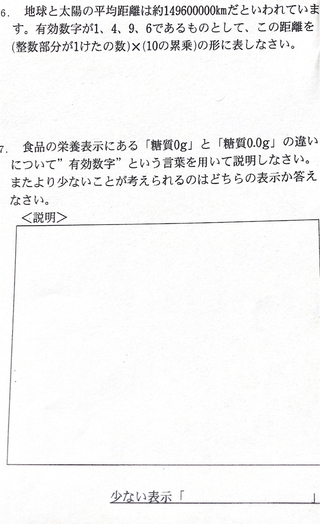 6. 地球と太陽の平均距離は約149600000kmだといわれていま
す。有効数字が1、4、9、6であるものとして、この距離を
(整数部分が1けたの数)×(10の累乗)の形に表しなさい。
7. 食品の栄養表示にある「糖質0g」と「糖質0.0g」の違い
について”有効数字”という言葉を用いて説明しなさい。
またより少ないことが考えられるのはどちらの表示か答え
なさい。
<説明>
少ない表示「 」